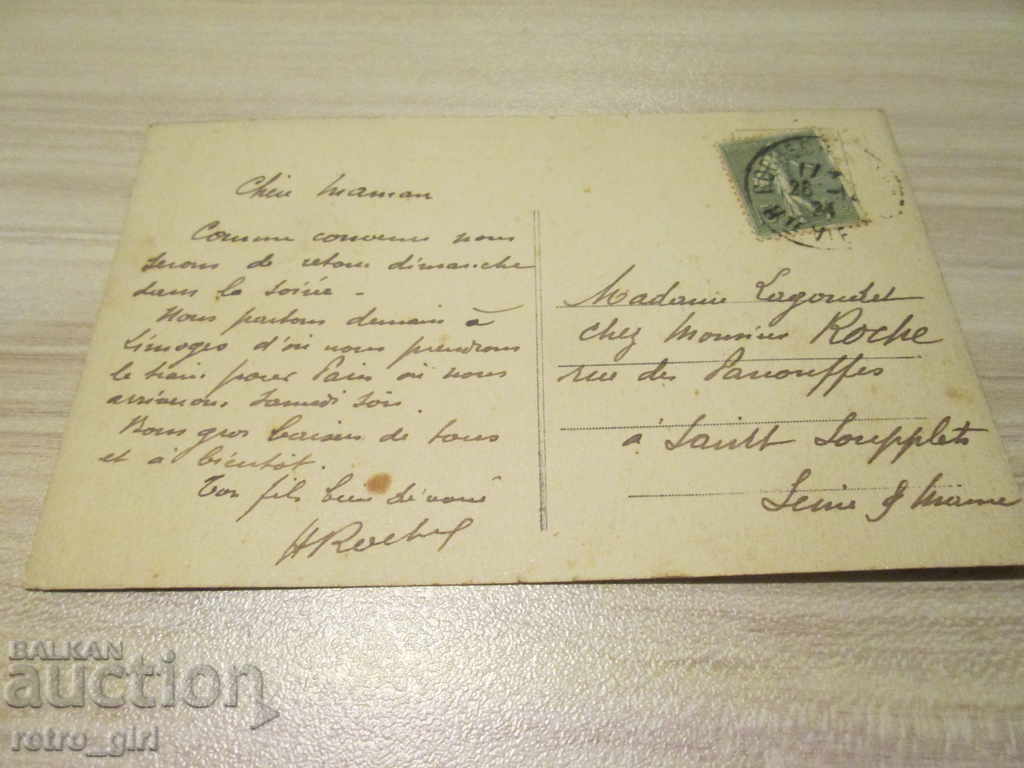 Chère Maman
Comme convenu nous
serons de retour dimanche
dans la soirée -
Nous partons demain à
Limoges d'où nous prendrons
le train pour Paris où nous
arriverons Samedi soir.
Bons gros baisers de tous
et à bientôt.
Ton fils bien dévoué
HRoche
17
28
24
Madame Lagoudet
chez Monsieur Roche
rue des Panouffes
à Saint Soupplets
Seine & Marne
BALKAN
auction
retro_girl